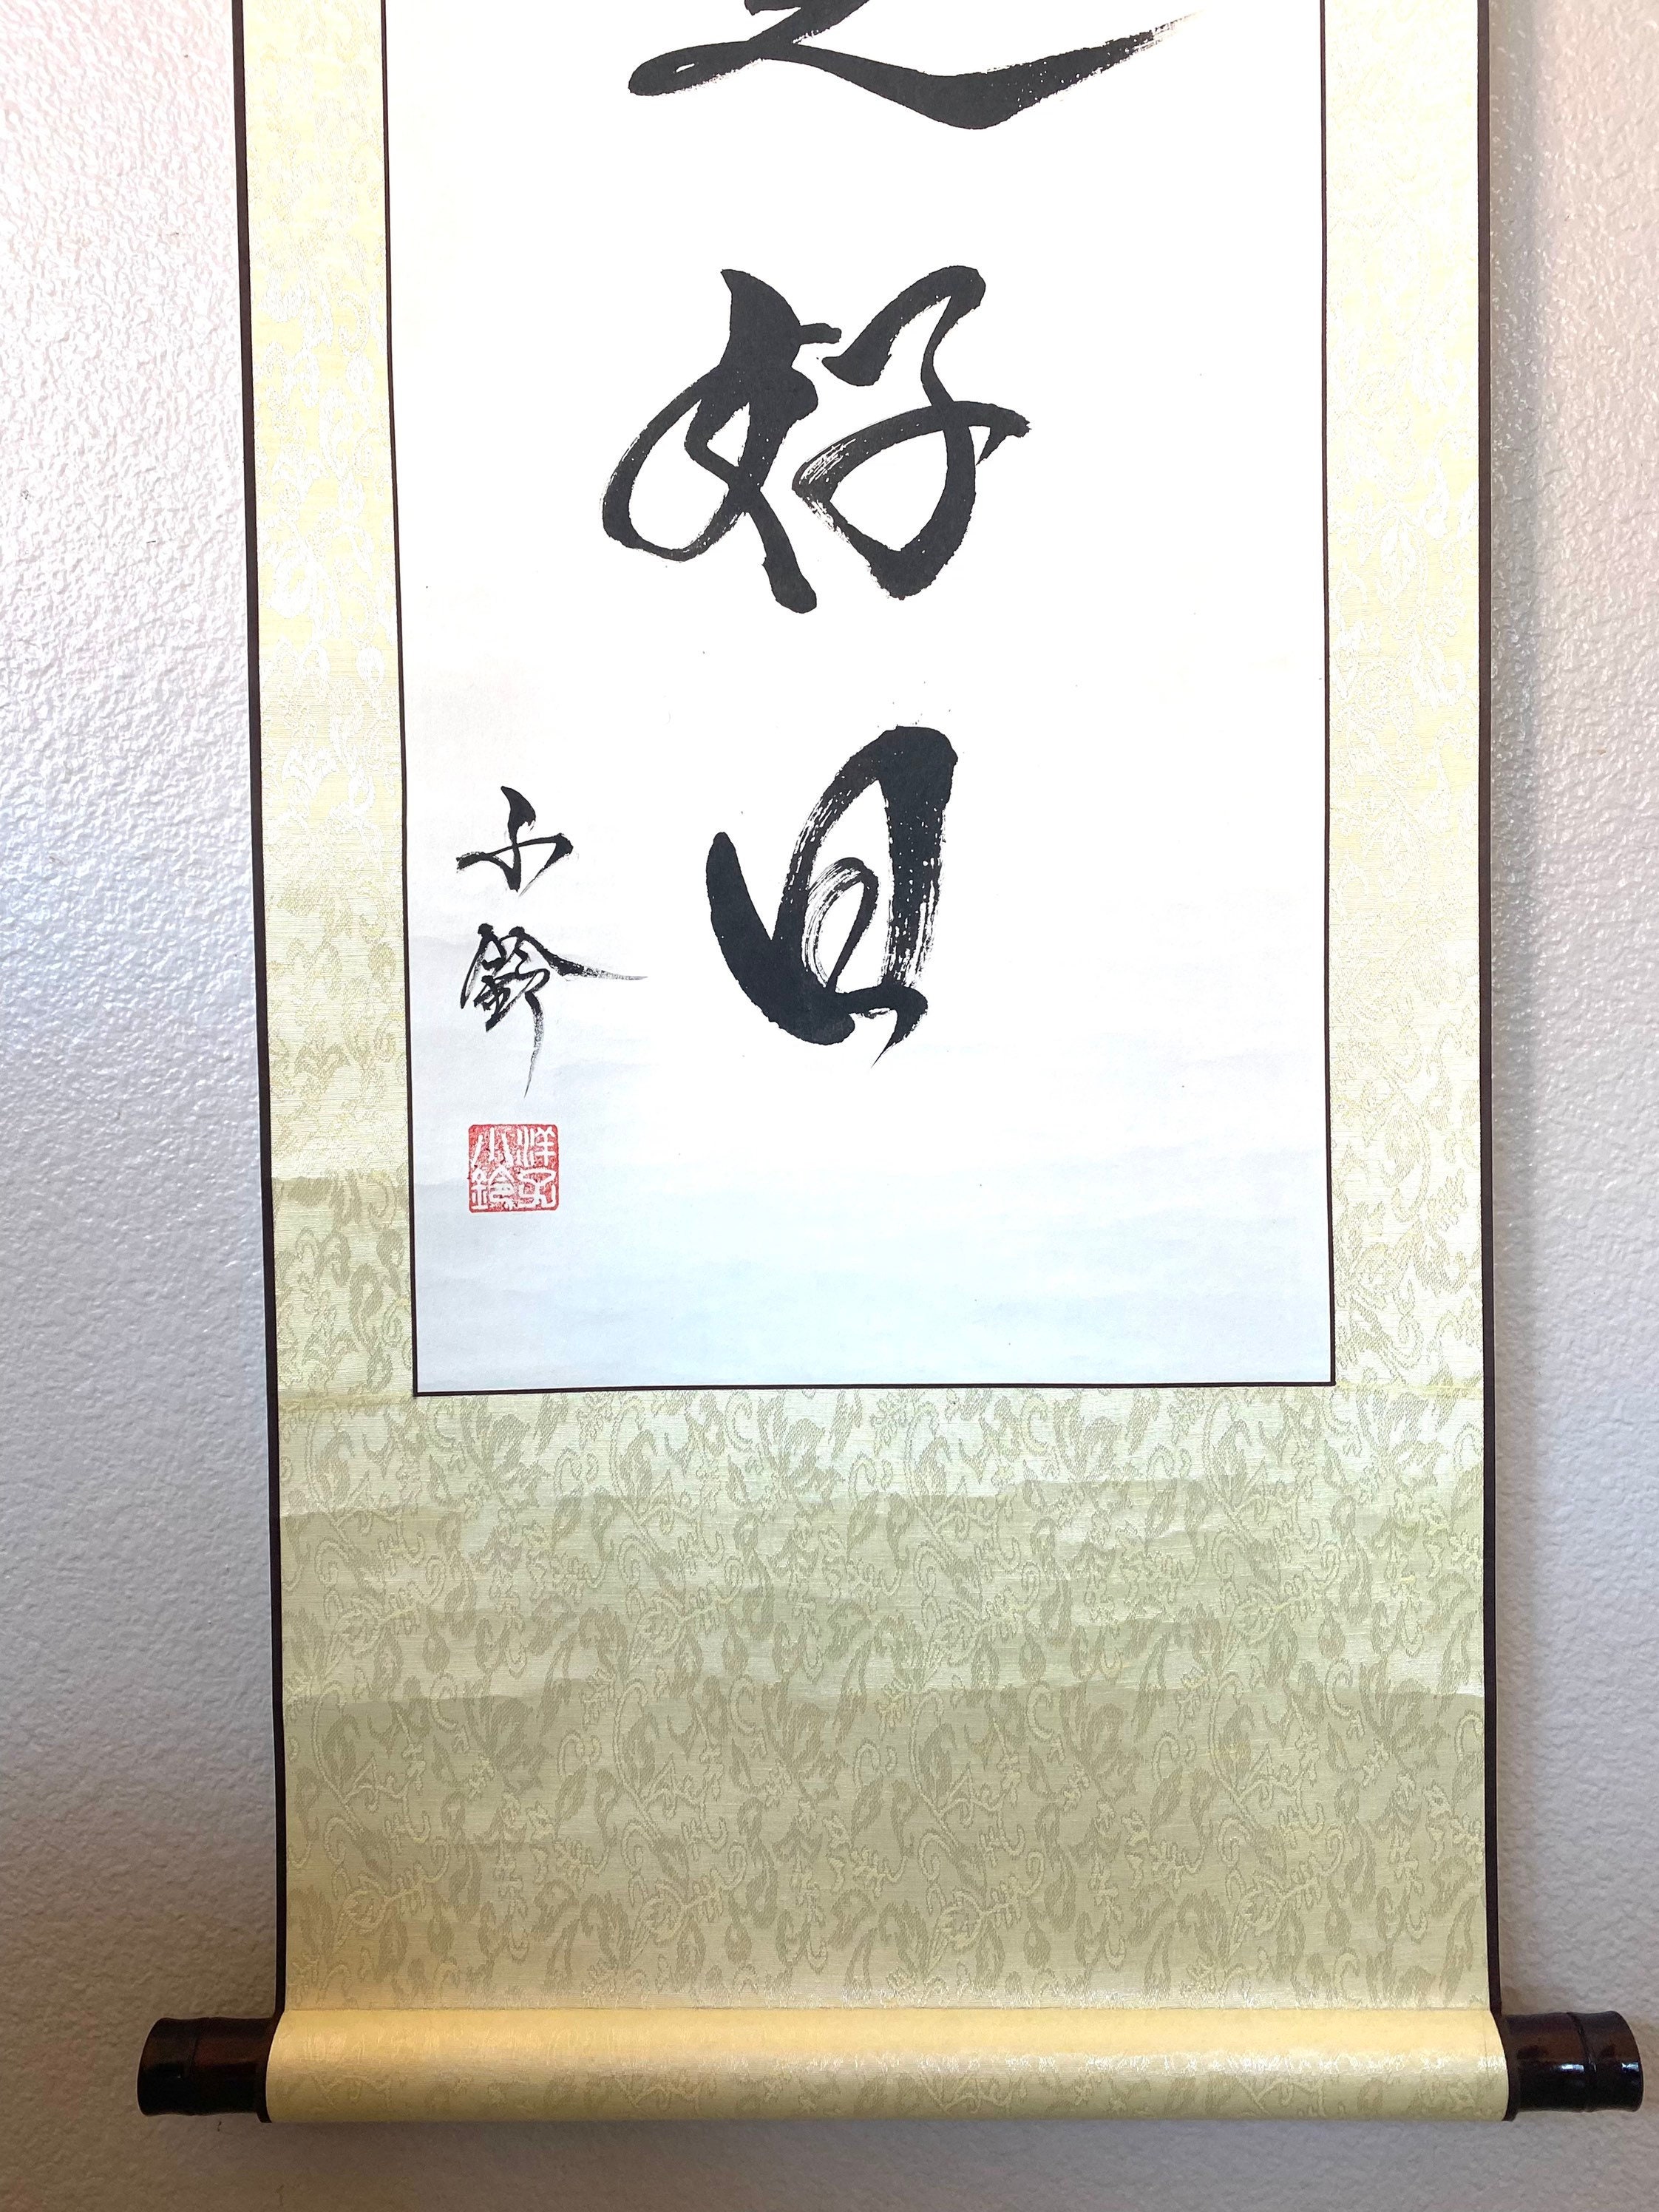 是好日
小鈴
洋子
小鈴